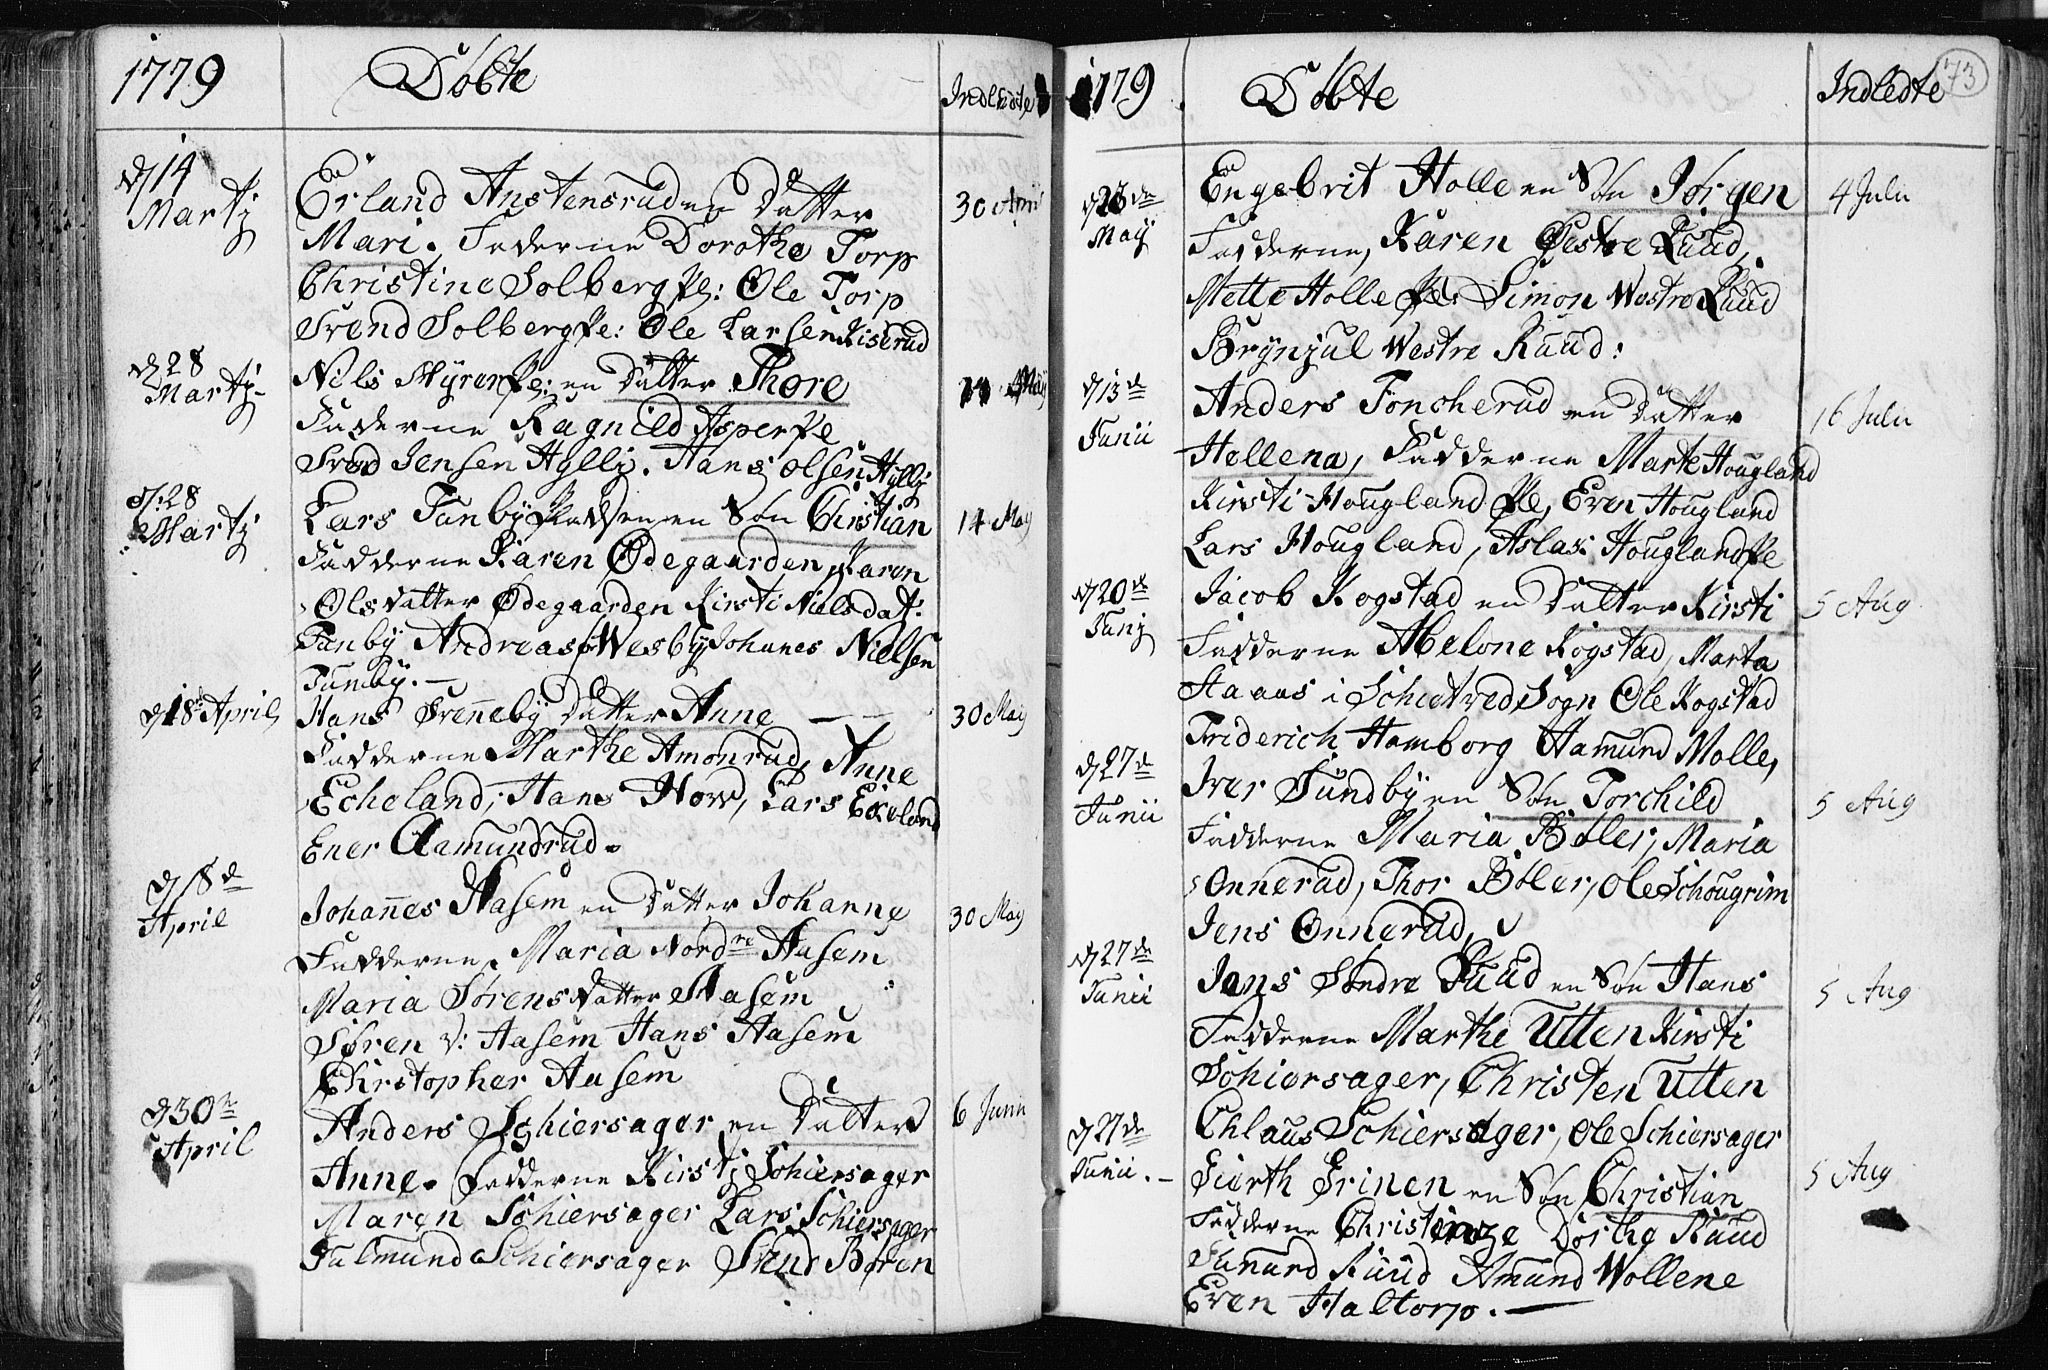 1779 Döbte Indledte
d 14 Martij
Erland Anstensrud en Datter
Mari. Fadderne Dorothe Torp
30 April
Christine Solberg Pe: Ole Torp
Trond Solberg Pe: Ole Larsen Kiserud
d 28 Martij
Nils Myren Pe: en Datter Thore
May
Fadderne Ragnild Asper Pe
Jensen Hyllj. Hans Olsen Hyllj
d: 28 Martij
Lars Tanby Pladsen en Sön Christian
14 May
Fadderne Karen Ødegaarden, Karen
Olsdatter Ødegaarden Kirsti Nielsdat:
Tanby Andreas Wesby Johanes Nielsen
Tanby. —
d 18 April
Hans Grenneby Datter Anne — —
30 May
Fadderne Marthe Amonrud, Anne
Echeland, Hans How, Lars Eckeland
Ener Aamundrud.
d 18 de April
Johannes Aasem en Datter Johanne
30 May
Fadderne, Maria Nordre Aasem
Maria Sørensdatter Aasem
Sören V: Aasem Hans Aasem
Christopher Aasem
d 30 April
Anders Schiersager en Datter
6 Junii
Anne. Fadderne Kirstj Schiersager
Maren Schiersager Lars Schiersager
Schiersager Svend Boren
1779 Döbte Indledte
73
d 23 de May
Engebrit Holle en Sön Jörgen
4 Julii
Fadderne, Karen Østre Ruud,
Mette Holle Pe Simon Westre Ruud
Brynjul Westre Ruud:
d 13 de Junii
Anders Foncherud en Datter
16 Julii
Hellena, Fadderne Marte Hougland
Kirsti Hougland Pe, Even Hougland
Lars Hougland, Aslac Hougland Pe
d 20 de Junij
Jacob Kogstad en Datter Kirsti
5 Aug
Fadderne Abelone Kogstad, Marta
Haaas i Schiedved Sogn Ole Kogstad
Friderich Hamborg Aamund Molle,
d 27 de Junii
Iver Sundby en Sön Torchild
5 Aug
Fadderne Maria Böler, Maria
Onnerud, Thor Böler, Ole Schougrim
Jens Onnerud,
d 27 de Junii
Jans Söndre Ruud en Sön Hans
5 Aug
Fadderne Marthe Utten Kirsti
Schiersager, Christen Utten
Chlaus Schiersager, Ole Schiersager
d 27 de Junii. —
Gierth Grinen en Sön Christian
5 Aug
Fadderne Dorthe Ruud
Gunard Ruud Amund Wollene
Even Haltorp. —